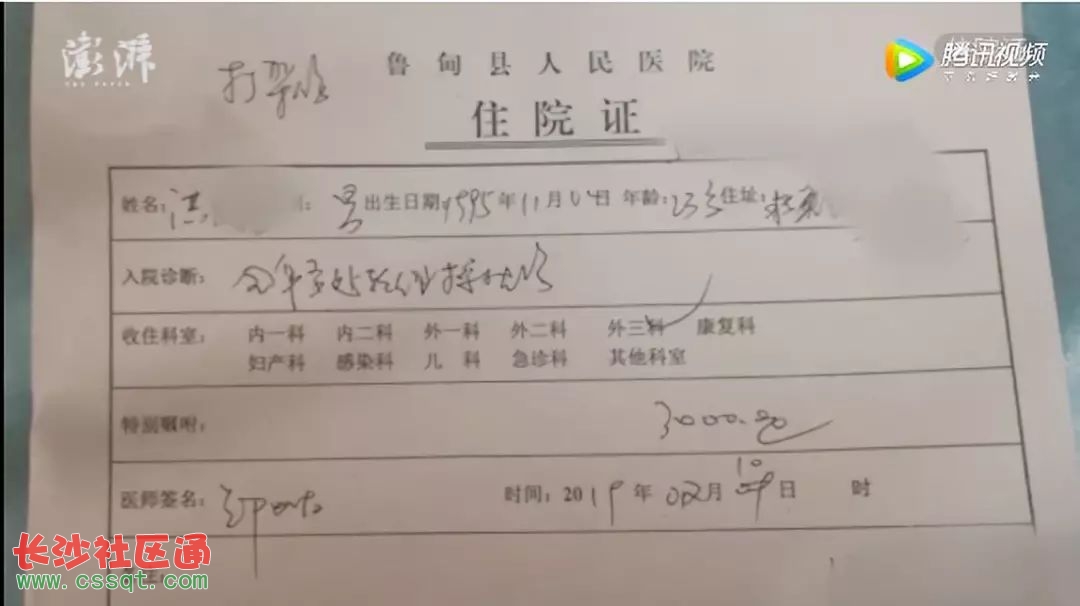 澎湃
THE PAPER
腾讯视频
鲁甸县人民医院
住院证
姓名: 男 出生日期 1995年11月04日 年龄:23岁 住址:
入院诊断: 全身多处软组织挫伤
收住科室: 内一科 内二科 外一科 外二科 外三科 康复科
妇产科 感染科 儿 科 急诊科 其他科室
特别嘱咐: 3000.00
医师签名: 时间:2019年02月10日 时
长沙社区通
www.cssqt.com